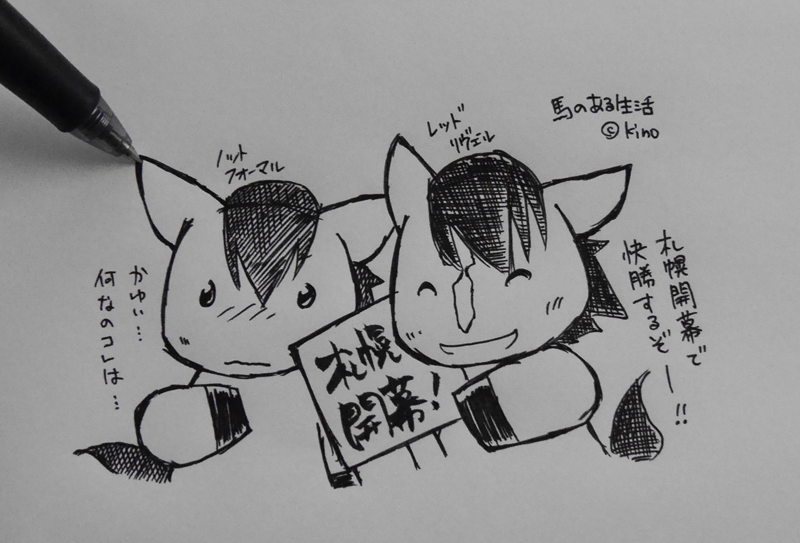 馬のある生活
©kino
レッド
リヴェル
ノット
フォーマル
札幌開幕で
快勝するぞー!!
札幌
開幕!
かゆい…
何なのコレは…